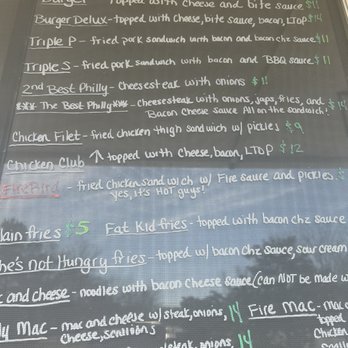 Burger - Topped with cheese and bite sauce $11
Burger Delux - topped with Cheese, bite sauce, bacon, LTOP $14
Triple P - fried pork Sandwich with bacon and bacon chz sauce $11
Triple S - fried pork sandwich with bacon and BBQ sauce $11
2nd Best Philly - Cheesesteak with onions $11
*** The Best Philly*** - cheesesteak with onions, japs, fries, and $14
Bacon Cheese Sauce All on the Sandwich!
Chicken Filet - fried chicken thigh sandwich w/ pickles $9
Chicken Club ↑ topped with Cheese, bacon, LTOP $12
FireBird - fried Chicken Sandwich w/ Fire sauce and pickles $
yes, it's HOT guys!
lain fries $5 Fat Kid fries - topped with bacon chz sauce
he's not Hungry fries - topped w/ bacon chz sauce, sour cream
and cheese - noodles with bacon cheese sauce (can NOT be made w
ly Mac - mac and cheese w/ steak, onions, 14 Fire Mac - mac
cheese, scallions topped
Chicken
steak, onions, 14